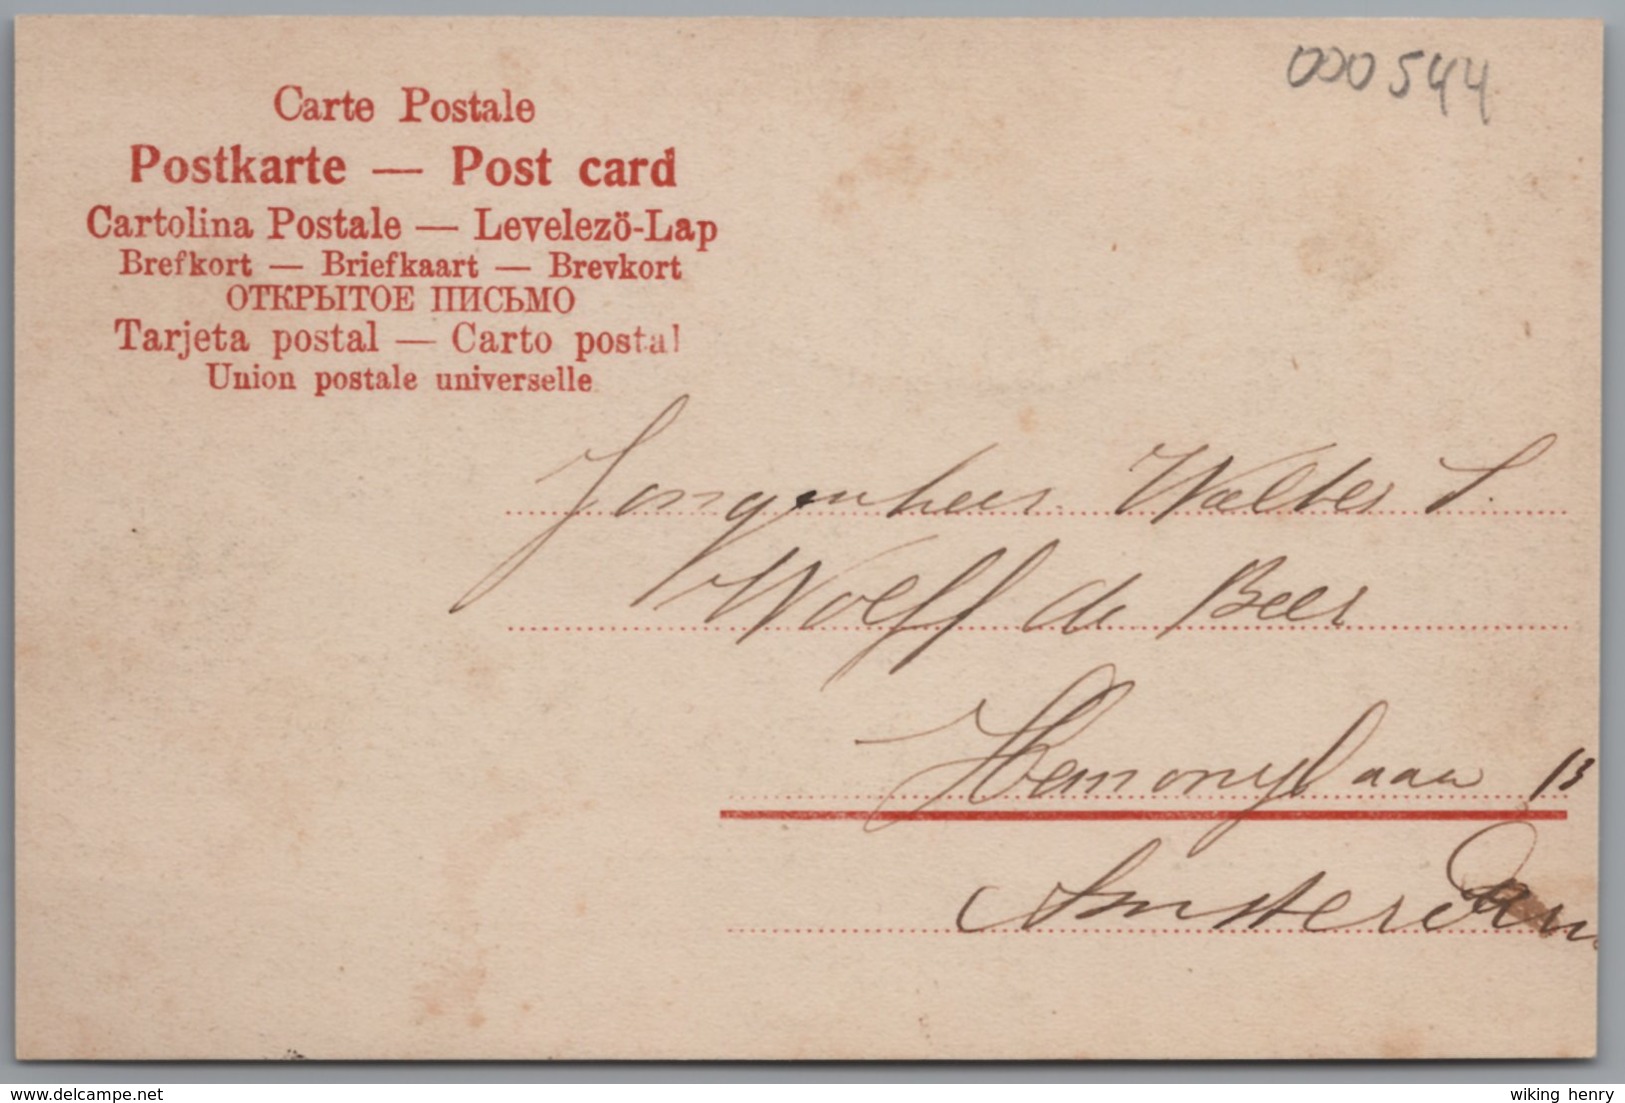 000544
Carte Postale
Postkarte — Post card
Cartolina Postale — Levelezö-Lap
Brefkort — Briefkaart — Brevkort
ОТКРЫТОЕ ПИСЬМО
Tarjeta postal — Carto postal
Union postale universelle
Jongenheer Walter S.
Wolff de Beer
Hemonylaan 13
Amsterdam
www.delcampe.net
wiking henry